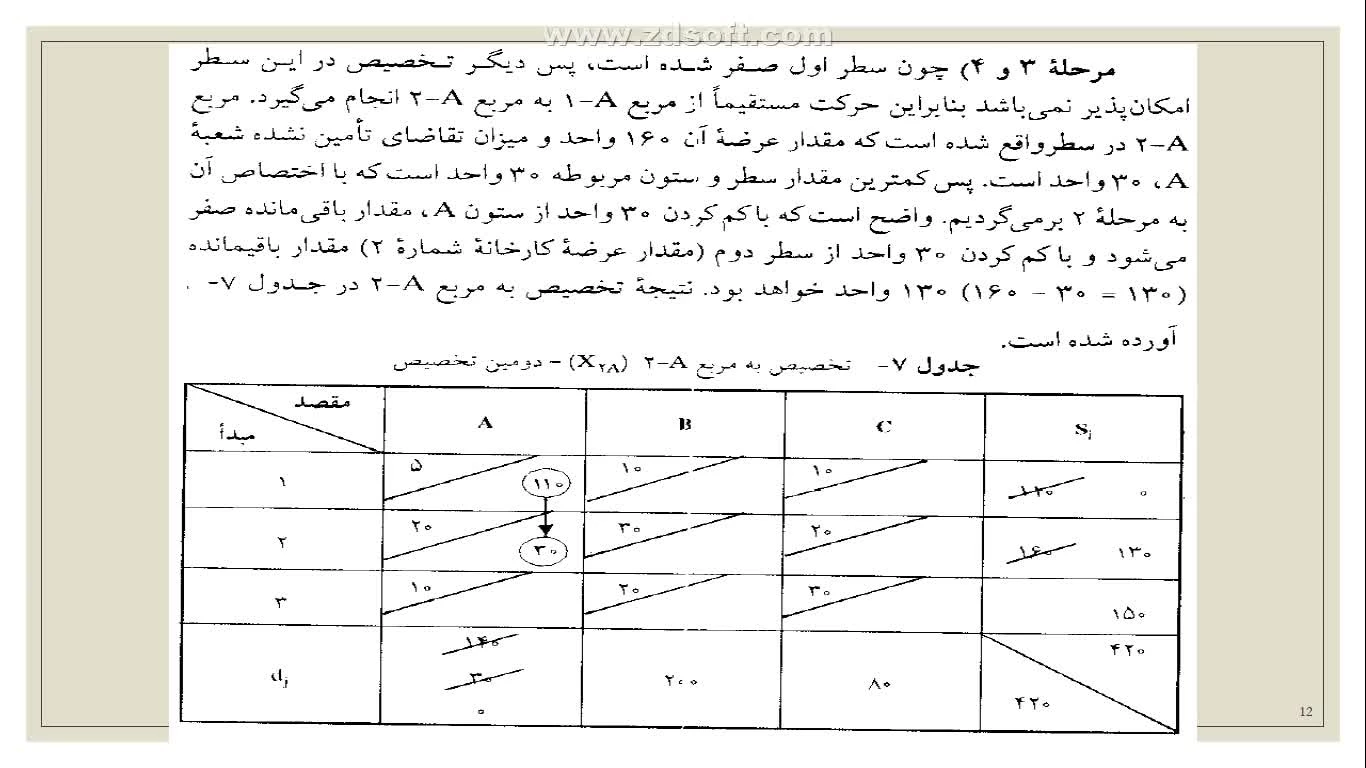 www.zdsoft.com
مرحلهٔ ۳ و ۴) چون سطر اول صفر شده است، پس دیگر تخصیص در این سطر
امکان‌پذیر نمی‌باشد بنابراین حرکت مستقیماً از مربع A-۱ به مربع A-۲ انجام می‌گیرد. مربع
A-۲ در سطرواقع شده است که مقدار عرضهٔ آن ۱۶۰ واحد و میزان تقاضای تأمین نشده شعبهٔ
A، ۳۰ واحد است. پس کمترین مقدار سطر و ستون مربوطه ۳۰ واحد است که با اختصاص آن
به مرحلهٔ ۲ برمی‌گردیم. واضح است که با کم کردن ۳۰ واحد از ستون A، مقدار باقی‌مانده صفر
می‌شود و با کم کردن ۳۰ واحد از سطر دوم (مقدار عرضهٔ کارخانهٔ شمارهٔ ۲) مقدار باقیمانده
(۱۶۰ - ۳۰ = ۱۳۰) ۱۳۰ واحد خواهد بود. نتیجهٔ تخصیص به مربع A-۲ در جدول ۷- .
آورده شده است.
جدول ۷- تخصیص به مربع A-۲ (X۲A) - دومین تخصیص
مقصد
مبدأ
A B C Si
۱ ۵ ۱۱۰ ۱۰ ۱۰ ۱۲۰ ۰
۲ ۲۰ ۳۰ ۳۰ ۲۰ ۱۶۰ ۱۳۰
۳ ۱۰ ۲۰ ۳۰ ۱۵۰
dj ۱۴۰ ۳۰ ۰ ۲۰۰ ۸۰ ۴۲۰ ۴۲۰
12